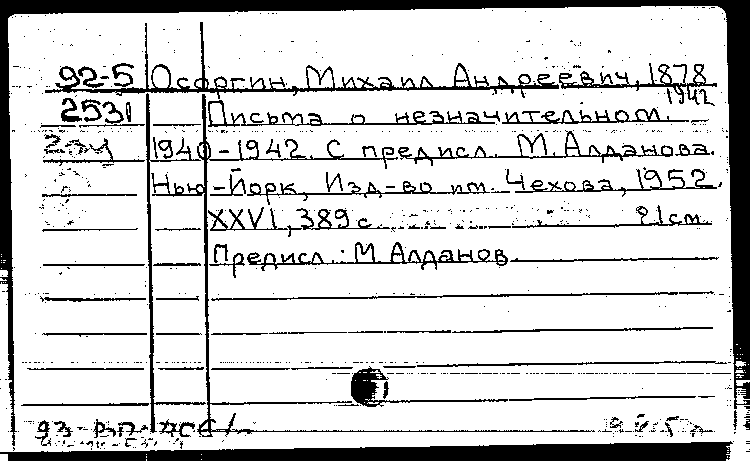 92-5 Осоргин, Михаил Андреевич, 1878
1942
2531 Письма о незначительном.
1940-1942. С предисл. М. Алданова.
Нью-Йорк, Изд-во им. Чехова, 1952.
XXVI, 389 с. 21см.
Предисл.: М. Алданов.